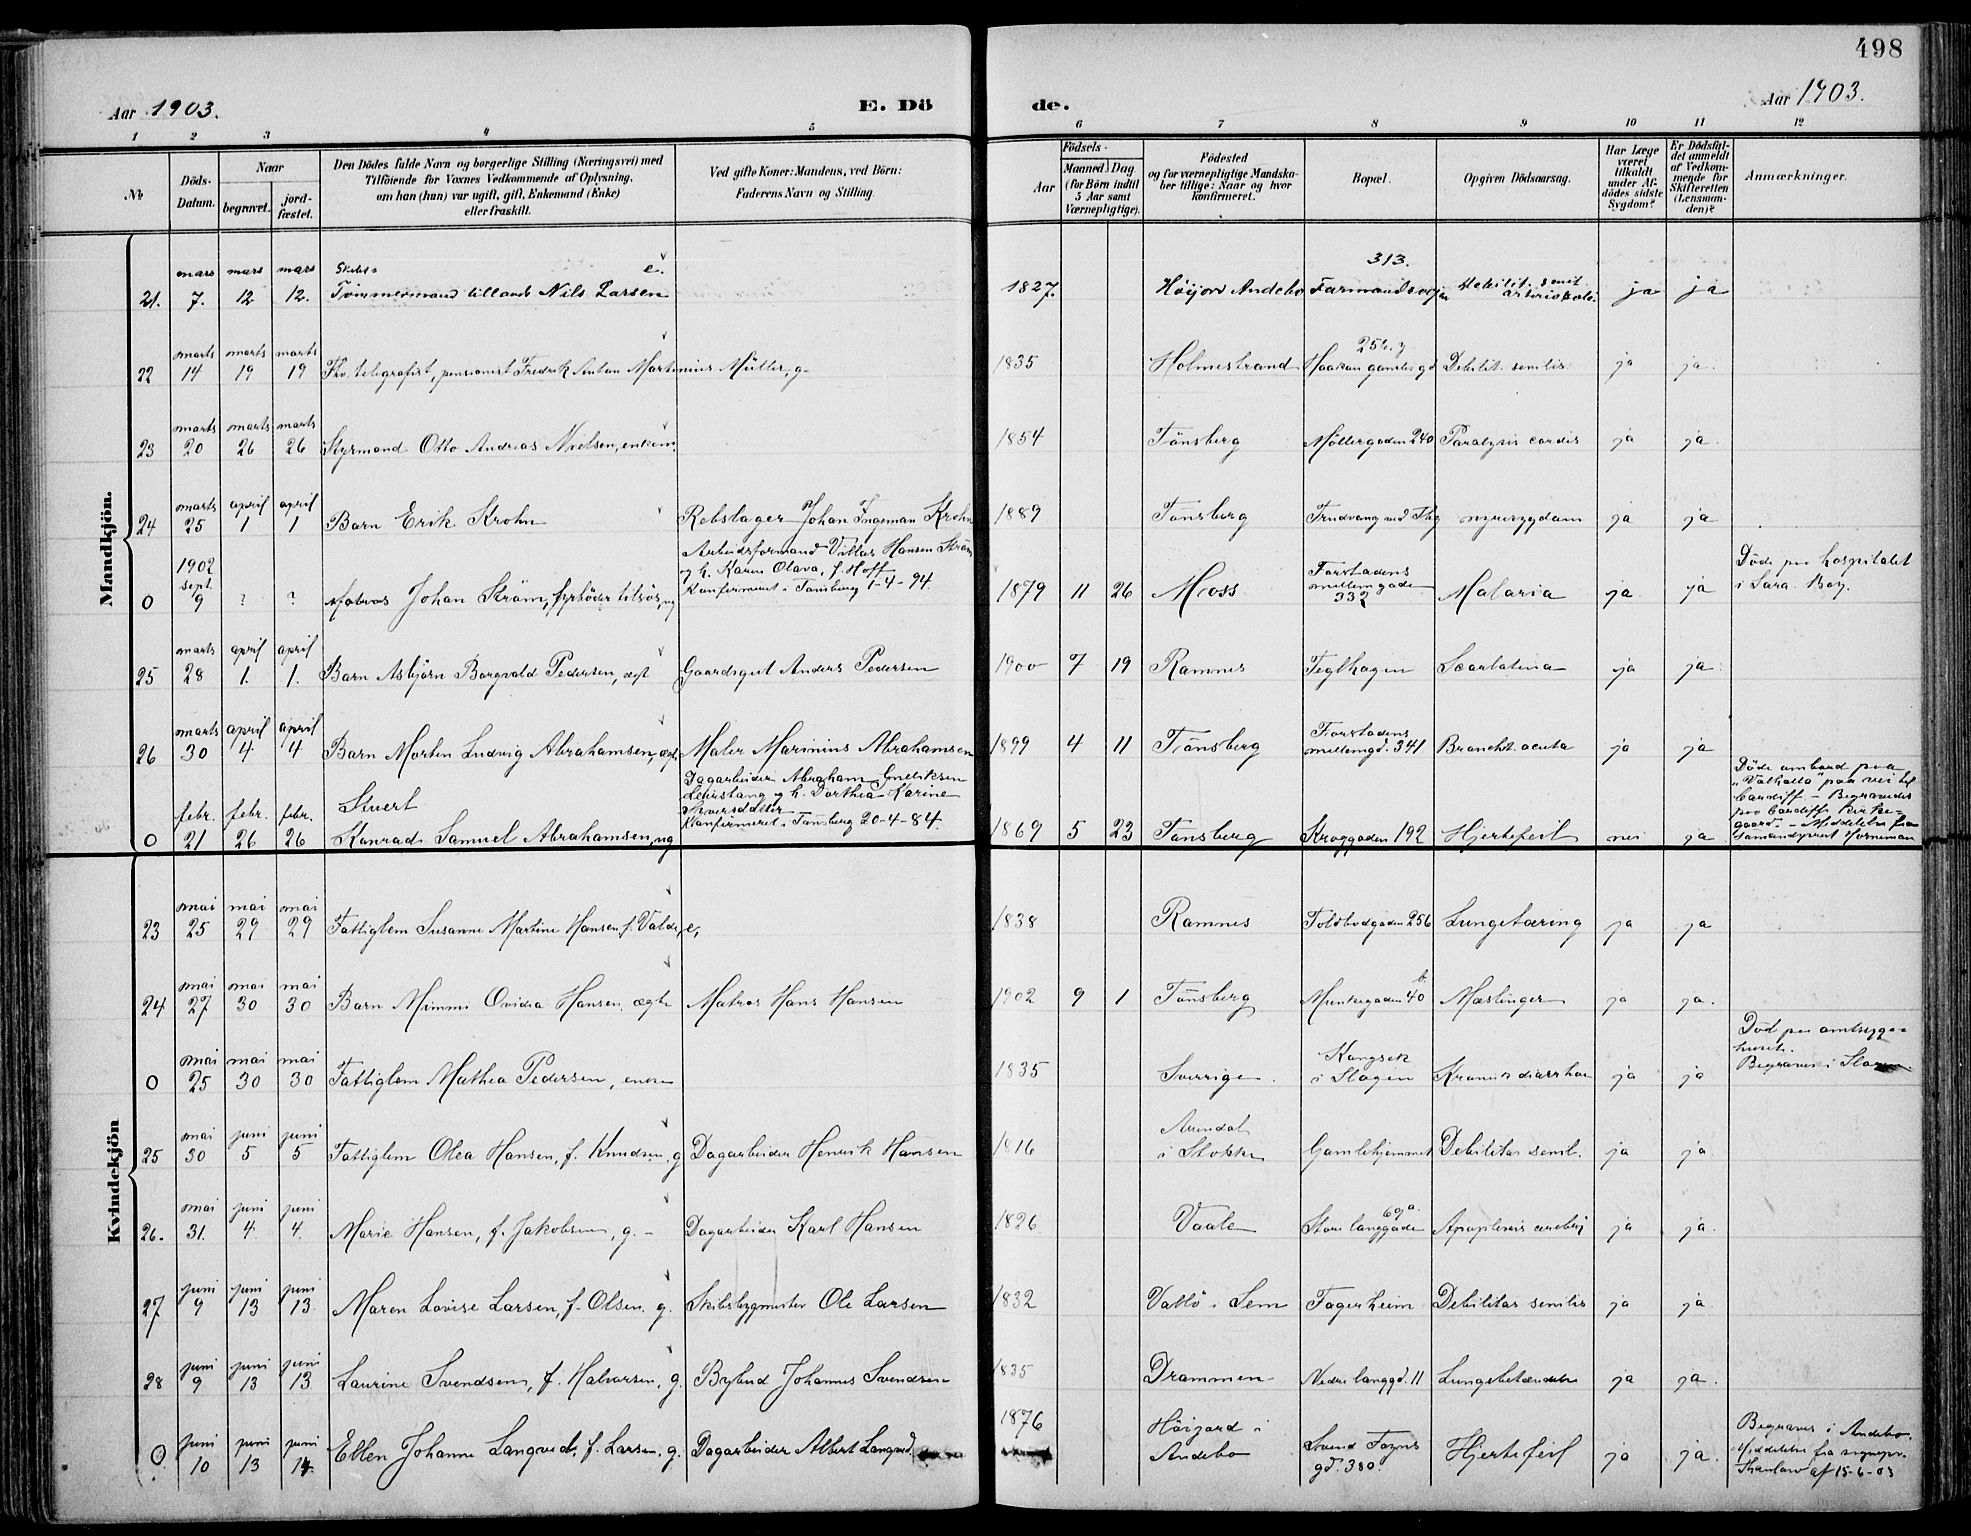 498
Aar 1903.
E. Dö
de.
Aar 1903.
1 2 3 4 5 6 7 8 9 10 11 12
№
Döds-Datum.
Naar
begravet.
jord-fæstet.
Den Dödes fulde Navn og borgerlige Stilling (Næringsvei) med
Tilföiende for Voxnes Vedkommende af Oplysning,
om han (hun) var ugift, gift, Enkemand (Enke)
eller fraskilt.
Ved gifte Koner: Mandens, ved Börn:
Faderens Navn og Stilling.
Födsels-
Aar
Maaned Dag
(for Börn indtil
5 Aar samt
Værnepligtige).
Födested
og for værnepligtige Mandska-
ber tillige: Naar og hvor
konfirmeret.
Bopæl.
Opgiven Dödsaarsag.
Har Læge
været
tilkaldt
under Af-
dödes sidste
Sygdom?
Er Dödsfal-
det anmeldt
af Vedkom-
mende for
Skifteretten
(Lensman-
den)?
Anmærkninger.
Mandkjön.
21. mars 7. mars 12 mars 12. Skibs-Tömmermand tillands Nils Larsen e. 1827. Höijord Andebo Farmandsveien 313. Debilit. senil arterioskole. ja ja
22 marts 14 marts 19 marts 19 Fhv. telegrafist, pensionist Fredrik Anton Martinius Müller, g. 1835 Holmestrand Haakon gamles gd 256. Debilit. senilis ja ja.
23 marts 20 marts 26 marts 26 Styrmand Otto Andreas Nielsen, enkem. 1854 Tönsberg Möllergaden 240 Paralysis cordis ja ja.
24 marts 25 april 1 april 1 Barn Erik Krohn Rebslager Johan Ingeman Krohn 1889 Tönsberg Trudvang ved Tbg nyresygdom ja ja
0 1902 sept. 9 ? ? Matros Johan Ström, ug
Arbeidsformand Hansen Ström
og h. Karen Olava, f. Hoff
Konfirmeret i Tönsberg 1-4-94.
1879 11 26 Moss Forstadens mellemgade 332 Malaria ja ja Döde paa hospitalet
i Sara. Bay.
25 marts 28 april 1. april 1. Barn Asbjörn Borgvald Pedersen, ægt Gaardsgut Anders Pedersen 1900 7 19 Ramnes Teglhagen Scarlatina ja ja
26 marts 30 april 4 april 4 Barn Morten Ludvig Abrahamsen, ægt. Maler Marinius Abrahamsen 1899 4 11 Tönsberg Forstadens mellemgd. 341 Bronchit. acuta ja ja
0 febr. 21 febr. 26 febr. 26 Stuert
Konrad Samuel Abrahamsen, ug
Dagarbeider Abraham
og h. Dorthea Karine
Konfirmeret i Tönsberg 20-4-84.
1869 5 23 Tönsberg Kroggaden 192 Hjertefeil nei ja
Döde ombord paa
"Valhalla" paa vei til
Cardiff - Begravedes
paa Cardiff kirke-
gaard - Meddelelse fra
Sömandsprest Horneman
Kvindekjön
23 mai 25 mai 29 mai 29 Fattiglem Susanne Martine Hansen f. e, 1838 Ramnes Toldbodgaden 256 Lungetæring ja ja
24 mai 27 mai 30 mai 30 Barn Mimmi Ovidia Hansen, ægte Matros Hans Hansen 1902 9 1 Tönsberg Munkegaden 40 b Mæslinger ja ja.
0 mai 25 mai 30 mai 30 Fattiglem Mathea Pedersen, 1835 Sverrige i Slagen Kronisk diarrhoe ja ja Död paa amtssyge-
huset.
Begraves i Slagen
25 mai 30 juni 5 juni 5 Fattiglem Olea Hansen, f. Knudsen, g Dagarbeider Henrik Hansen 1816 Arendal i Stokke Gamlehjemmet Debilitas senil. ja ja
26. mai 31. juni 4. juni 4. Marie Hansen, f. Jakobsen, g. - Dagarbeider Karl Hansen 1826 Vaale Store langgade 69 a. Apoplexis cerebri ja ja.
27 juni 9 juni 13 juni 13. Maren Lovise Larsen, f. Olsen, g. Skibsbygmester Ole Larsen 1832 Vallö i Sem Fagerheim Debilitas senilis ja ja
28 juni 9 juni 13 juni 13 Laurine Svendsen, f. Halvorsen, g. Bybud Johannes Svendsen 1835 Drammen Nedre langgd. 11 Lungebetændelse ja ja.
0. juni 10 juni 13 juni 14. Ellen Johanne Langved, f. Larsen, g. Dagarbeider Albert Langved 1876 Höijord i Andebo Svend Foyns gd. 380. Hjertefeil ja ja.
Begraves i Andebo.
Meddelelse fra sognepr.
af 15-6-03